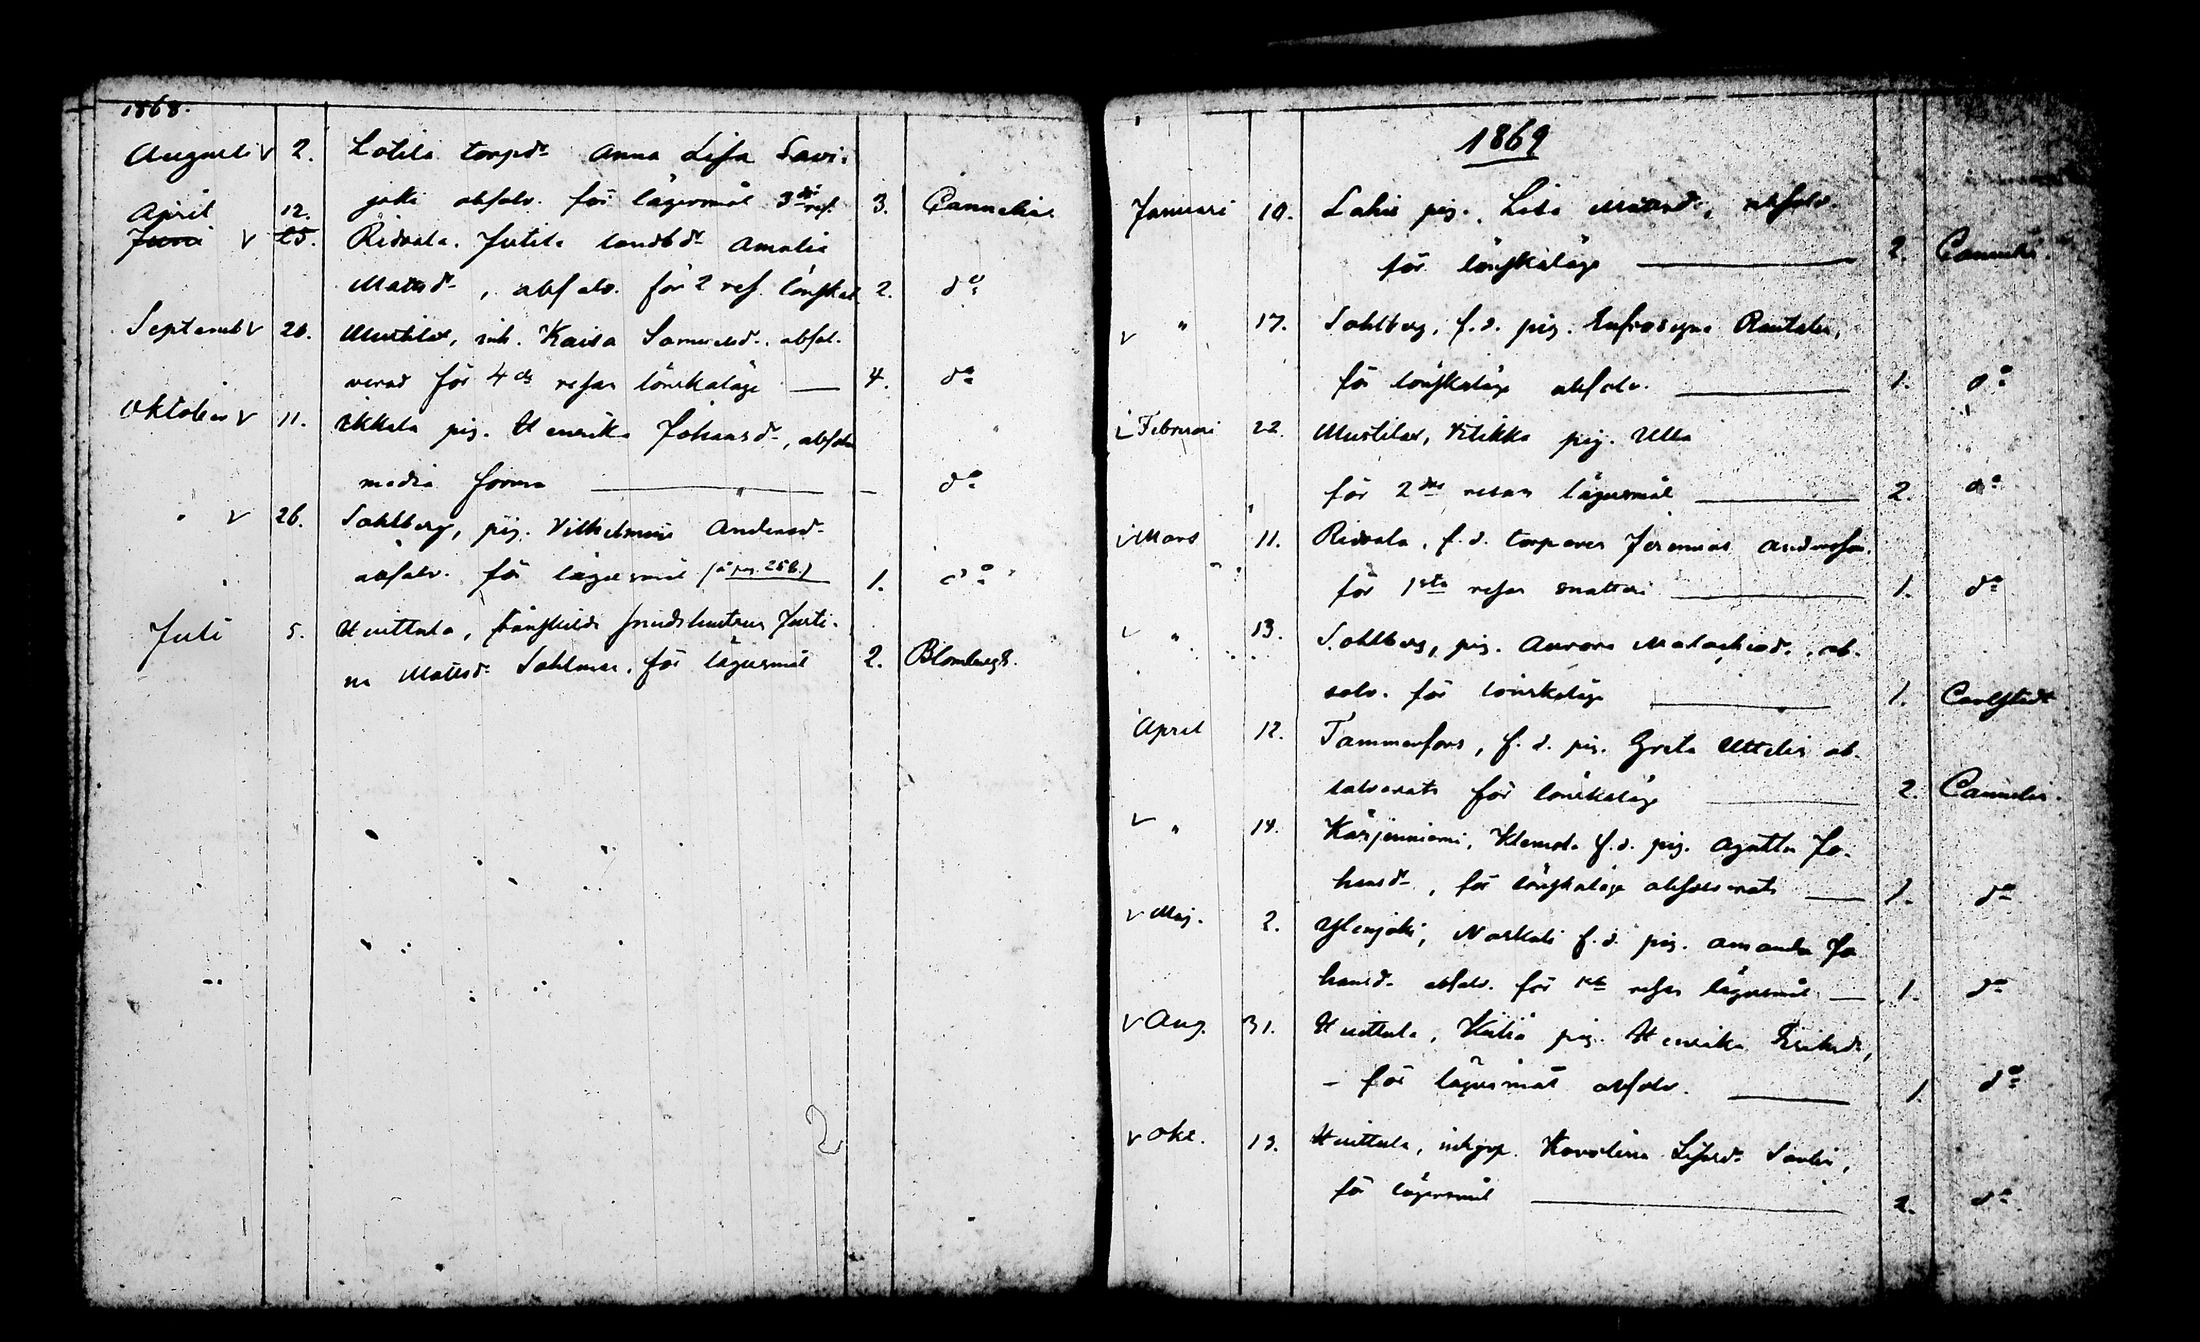 1868.
Augusti v 2. Lotila torpd. Anna Lisa Savi-
joki absolv. för lägersmål 3dje res. 3. Cannelin
April 12.
Juni v 25. Ridvala. Jutila landbd. Amalia
Matsd., absolv. för 2 res. lönskal. 2. do
Septemb v 20. Mustila, inh. Kaisa Samuelsd. absol-
verad för 4de resan lönskaläge — 4. do
Oktober v 11. Ukkola pig. Henrika Johansd., absolv.
media forma — — do
" v 26. Sahlberg, pig. Vilhelmina Andersd.
absolv. för lägersmål 1. do
Juli 5. Huittula, frånskilda smedshustrun Justi-
na Matsd. Sahlman, för lägersmål 2. Blombergh.
1869
Januari 10. Lahis pig. Lisa absolv.
för lönskaläge — 2. Cannelin.
v " 17. Sahlberg, f.d. pig. Eufrosyne Rautalin,
för lönskaläge absolv. — 1. do
v Februari 22. Mustila, pig. Ulla
för 2dra resan lägersmål — 2. do
v Mars 11. Ridvala, f.d. torparen Jeremias Andersson.
för 1sta resan snatteri — 1. do
v " 13. Sahlberg, pig. Aurora Malachiasd. ab-
solv. för lönskaläge — 1. Carlstedt
April 12. Tammerfors, f.d. pig. Greta ab-
solverats för lönskaläge — 2. Cannelin.
v " 14. Kärjenniemi, Klemola f.d. pig. Agatha Jo-
hansd., för lönskaläge absolverats — 1. do
v Maj. 2. Ylenjoki, f.d. pig. Amanda Jo-
hansd. absolv. för 1sta resan lägersmål — 1. do
v Aug. 31. Huittula, pig. Henrika Eriksd.,
– för lägersmål absolv. — 1. do
v Okt. 13. Huittula, Karolina
för lägersmål — 2. do
2